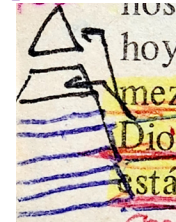 nos
hoy
mez
Dio
está